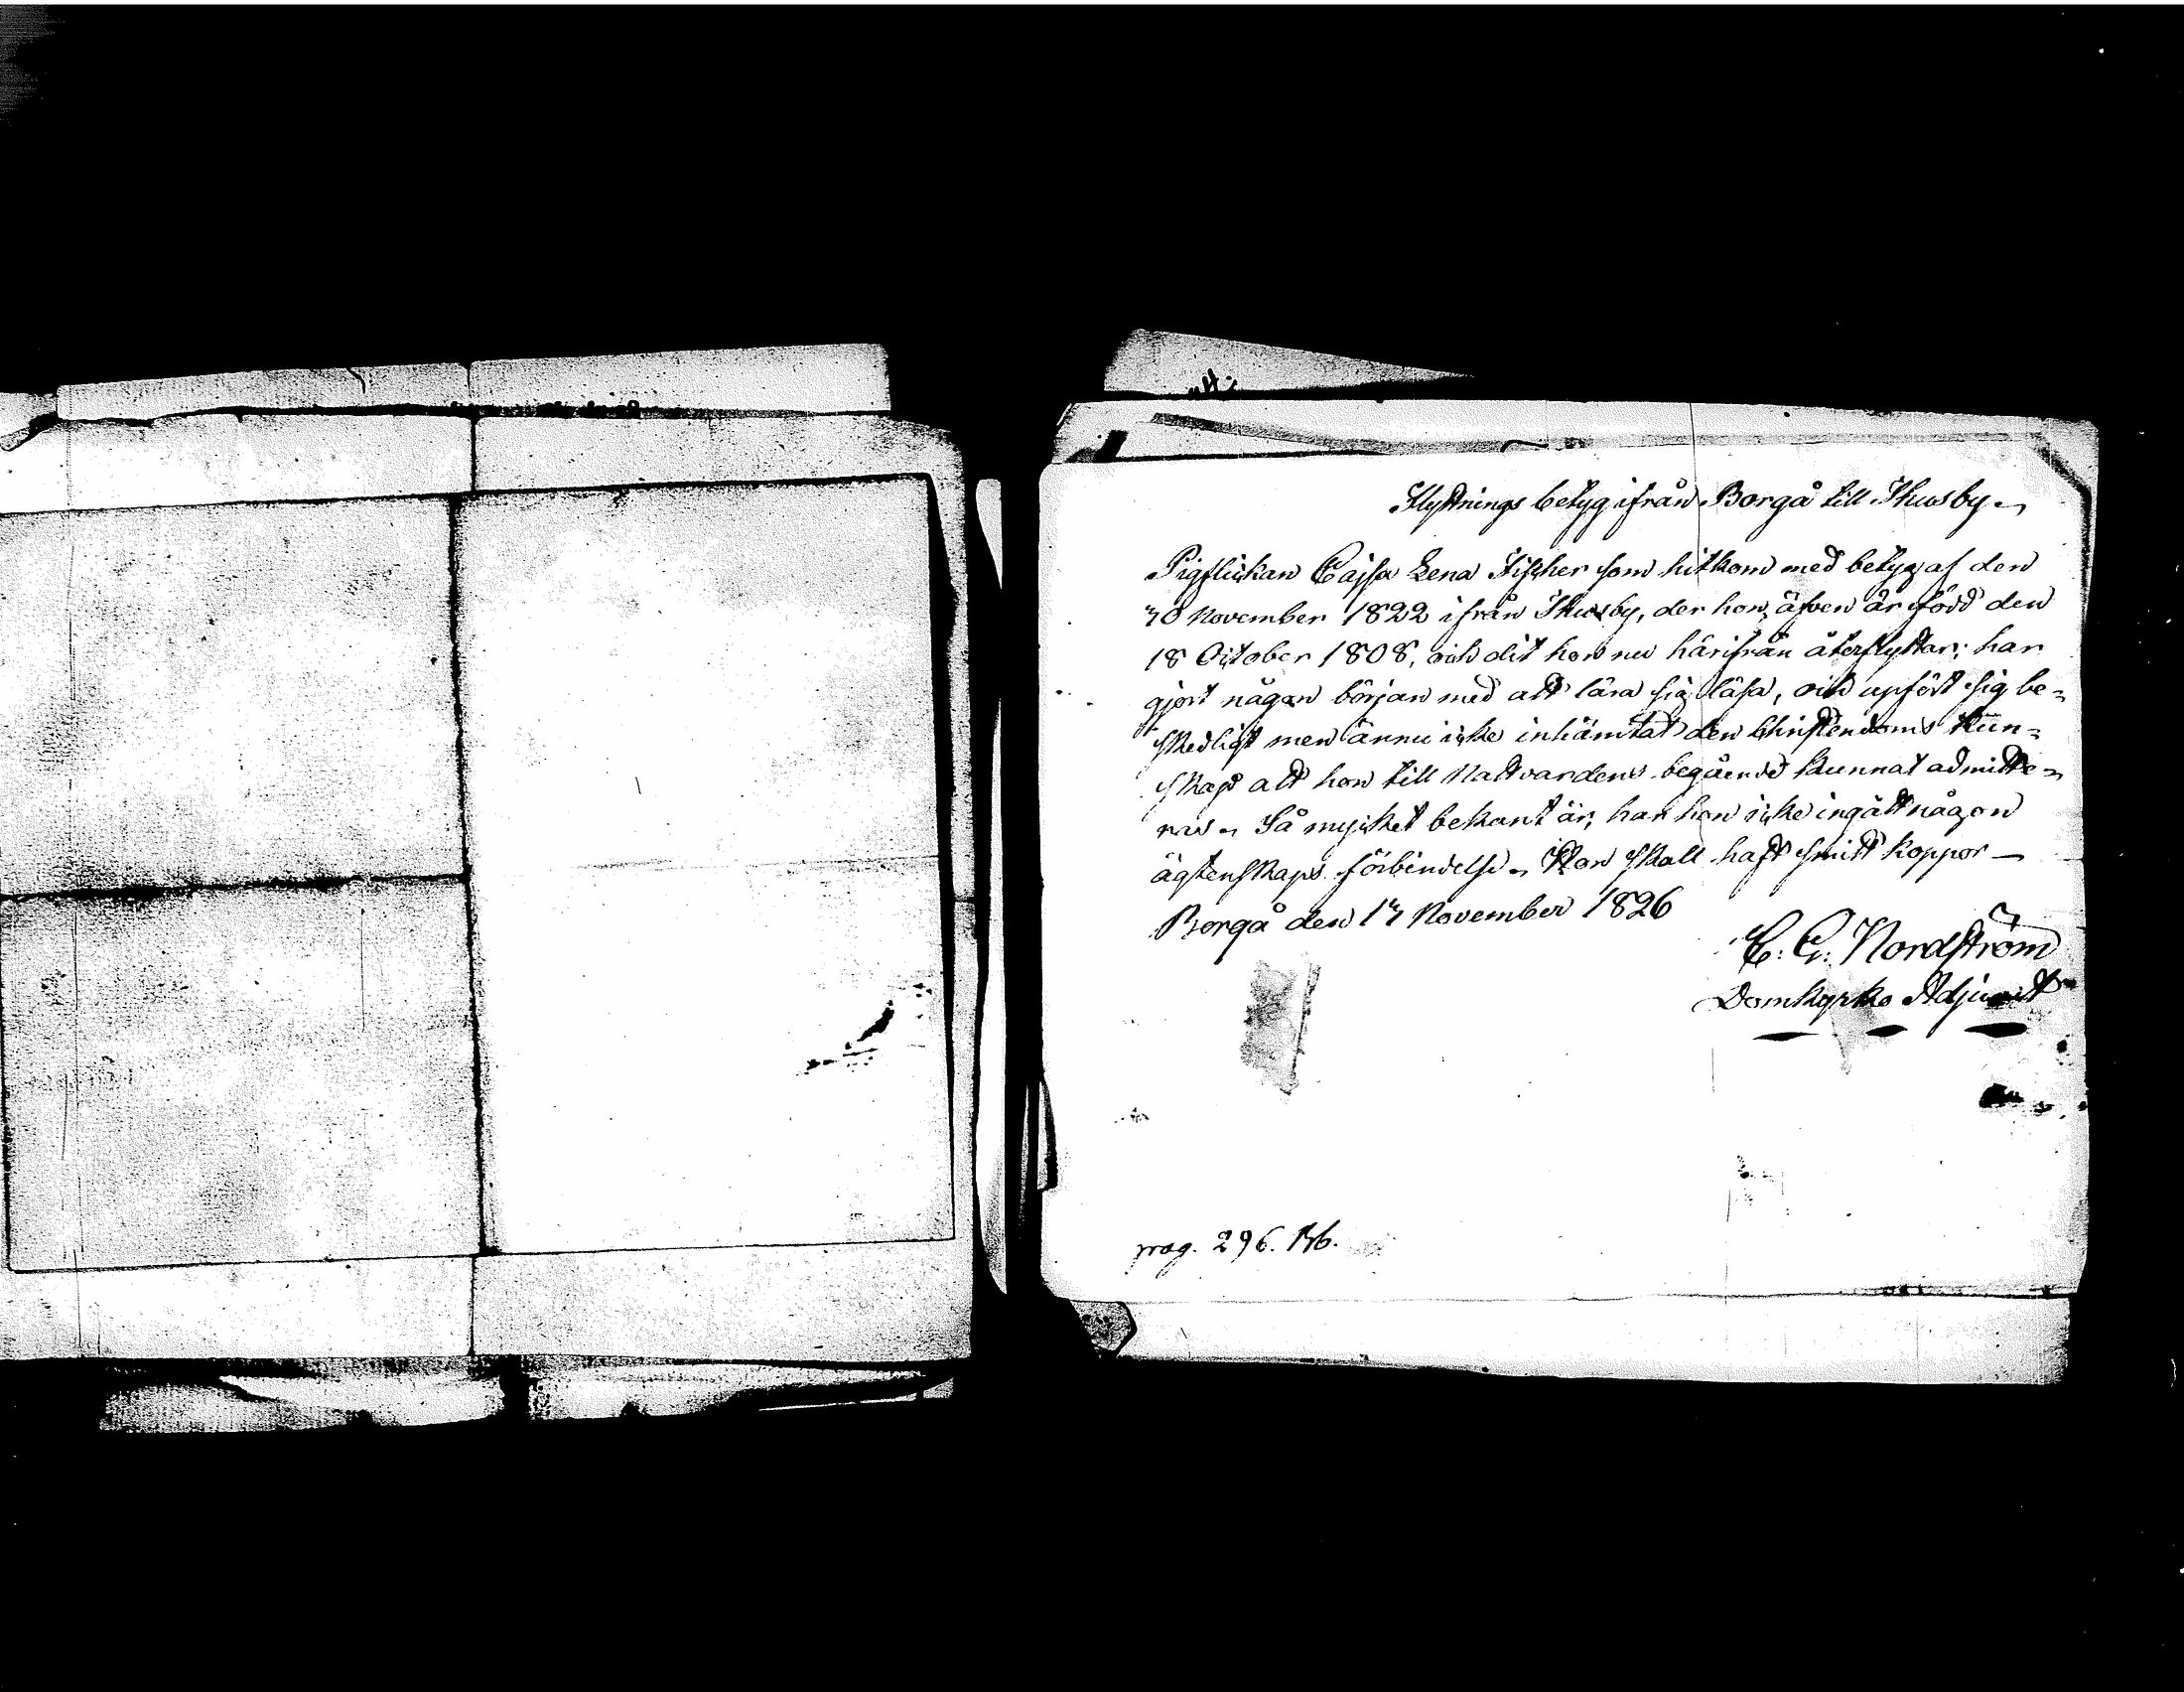 Flyttnings betyg ifrån Borgå till Thusby.
Pigflickan Cajsa Lena Fischer som hitkom med betyg af den
30 November 1822 ifrån Thusby, der hon äfven är född den
18 October 1808, och dit hon nu härifrån återflyttar; har
gjort någon början med att lära sig läsa, och upfört sig be=
skedligt men ännu icke inhämtat den Christendoms Kun=
skap att hon till Nattvardens begående kunnat admitte=
ras. Så mycket bekant är, har hon icke ingått någon
ägtenskaps förbindelse. Hon skall haft smitt koppor —
Borgå den 17 November 1826
C. G. Nordström
Domkyrko Adjunct
pag. 296.